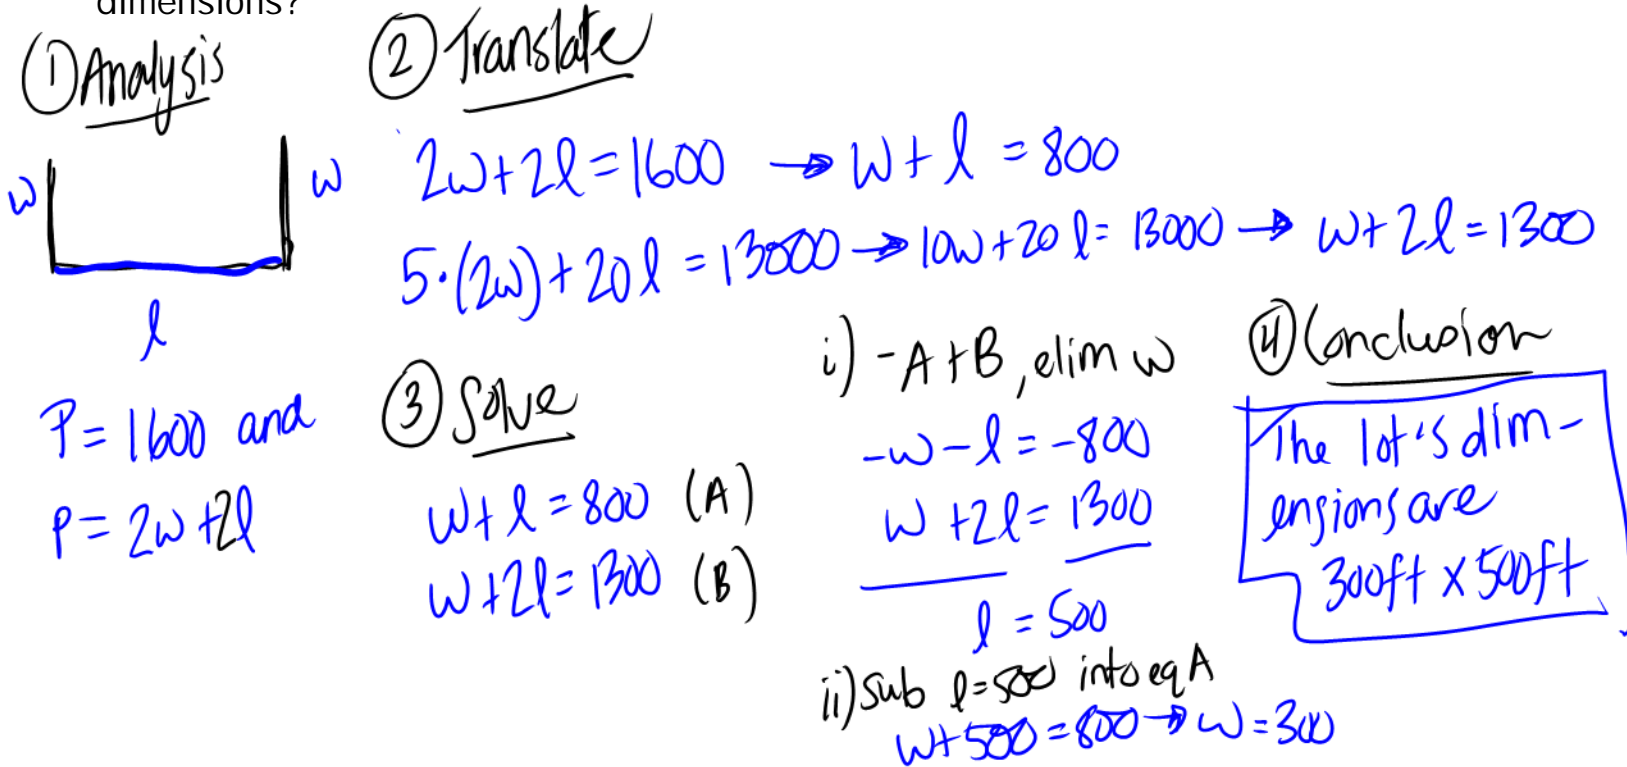 dimensions?
① Analysis
w
w
l
P = 1600 and
P = 2w + 2l
② Translate
2w + 2l = 1600 → w + l = 800
5·(2w) + 20l = 13000 → 10w + 20l = 13000 → w + 2l = 1300
③ Solve
w + l = 800 (A)
w + 2l = 1300 (B)
i) -A + B, elim w
-w - l = -800
w + 2l = 1300
l = 500
ii) Sub l = 500 into eq A
w + 500 = 800 → w = 300
④ Conclusion
The lot's dim-
ensions are
300ft x 500ft